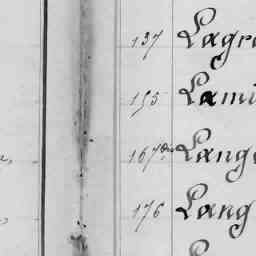 137 Lagr
155 Lami
167 Lang
176 Lang